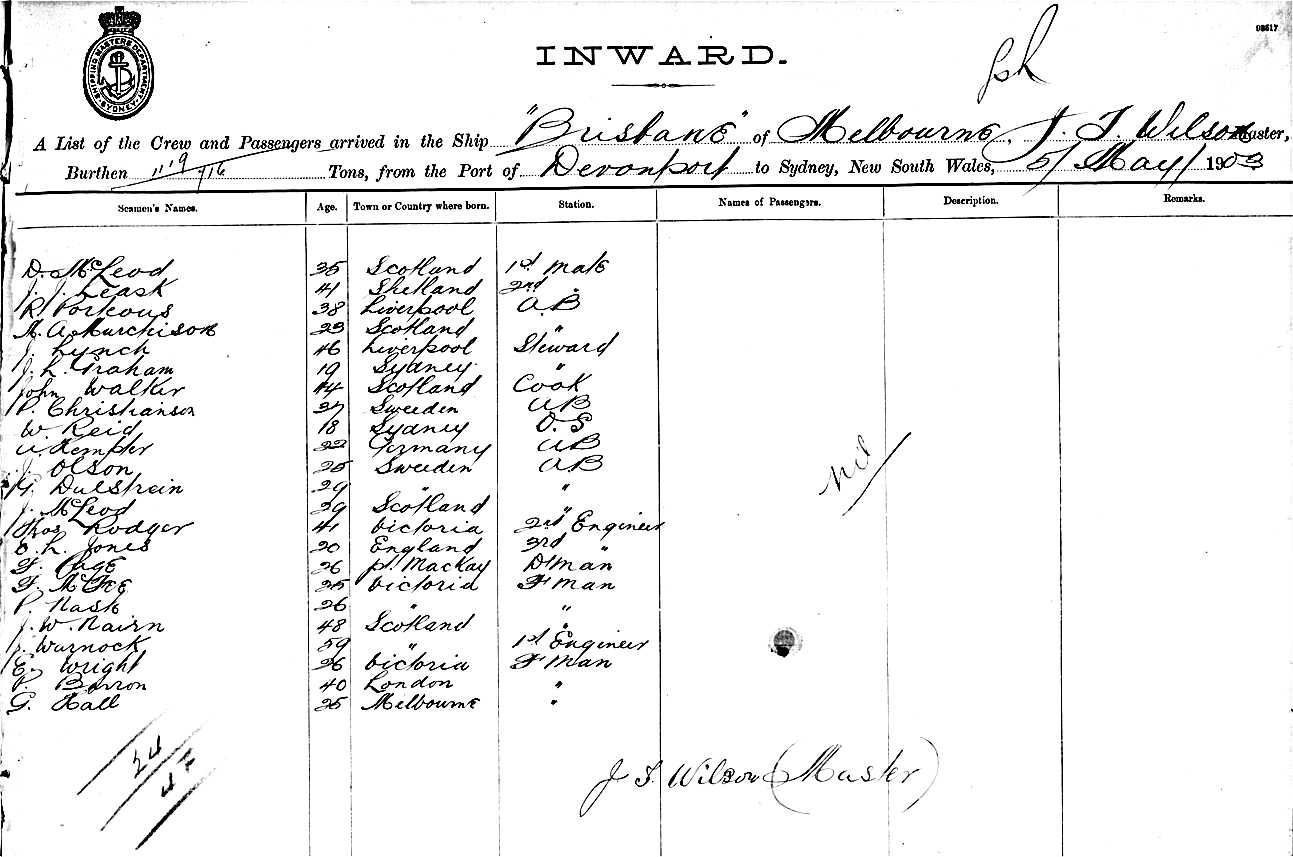 03517
INWARD.
SHIPPING MASTERS DEPARTMENT SYDNEY
A List of the Crew and Passengers arrived in the Ship "Brisbane" of Melbourne, J. T. Wilson Master,
Burthen Tons, from the Port of Devonport to Sydney, New South Wales, 5/ May/ 1903
Seamen's Names. Age. Town or Country where born. Station. Names of Passengers. Description. Remarks.
D. McLeod 35 Scotland 1st mate
J. J. Leask 41 Shetland 2nd "
R Porteous 38 Liverpool A.B
M. A. Murchison 23 Scotland "
J. Lynch 46 Liverpool Steward
J. L. Graham 19 Sydney "
John Walker 44 Scotland Cook
P. Christianson 27 Sweeden AB
W. Reid 18 Sydney O.S
A Kempter 22 Germany AB
J. Olson 25 Sweeden AB
G. Dulstrein 29 " "
J. McLeod 29 Scotland "
Thos Rodger 41 Victoria 2nd Engineer
E. L. Jones 20 England 3rd "
F. Page 26 pt. Mackay D'man
F. McFee 25 Victoria F Man
P. Nash 26 " "
J. W. Nairn 48 Scotland "
J. Warnock 59 " 1st Engineer
E. Wright 26 Victoria F Man
P. Barron 40 London "
G. Hall 25 Melbourne "
Nil
24
J T. Wilson (Master)